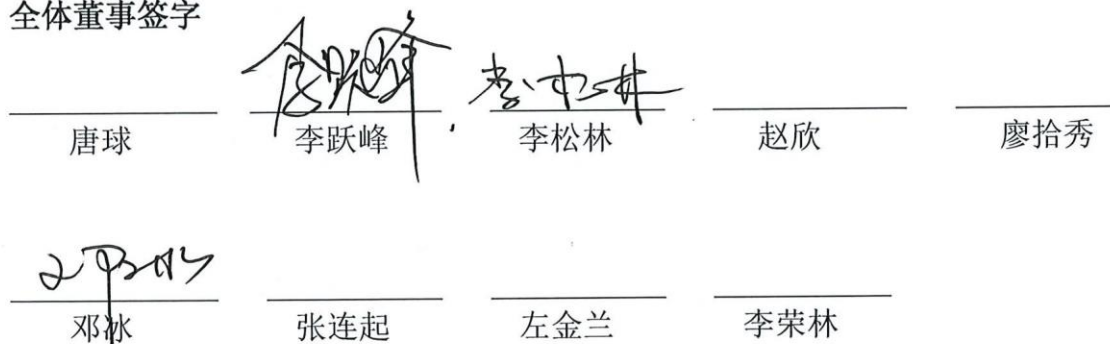 全体董事签字
李松林
唐球 李跃峰 李松林 赵欣 廖拾秀
邓冰
邓冰 张连起 左金兰 李荣林